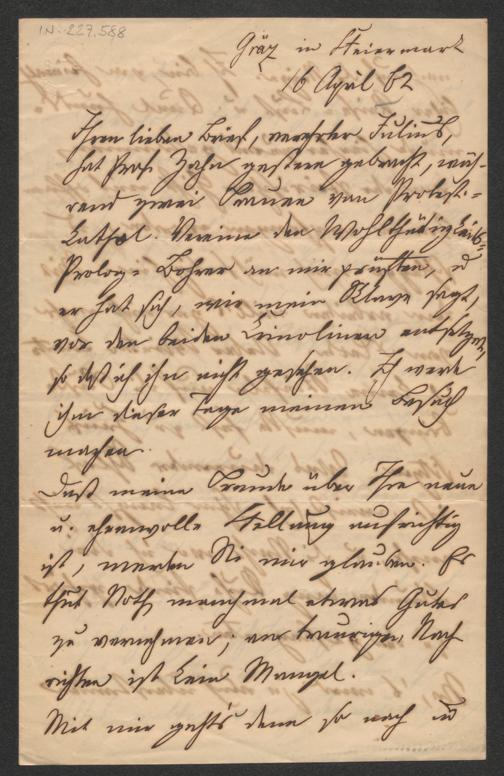 I.N. 227.588
Gräz in Steiermark
16 April 62
Ihren lieben Brief, verehrter Julius,
hat Prof. Zahn gestern gebracht, wäh-
rend zwei Frauen von Protest.-
Kathol. Vereine den Wohlthätigkeits-
Prolog-Bohrer an mir prüften, u
er hat sich, wie mein Sklave sagt,
vor den beiden Krinolinen entsetzt,
so daß ich ihn nicht gesehen. Ich werde
ihm dieser Tage meinen Besuch
machen.
Daß meine Freude über Ihre neue
u. ehrenvolle Stellung aufrichtig
ist, werden Sie mir glauben. Es
thut Noth manchmal etwas Gutes
zu vernehmen; an traurigen Nach
richten ist kein Mangel.
Mit mir geht's denn so nach u